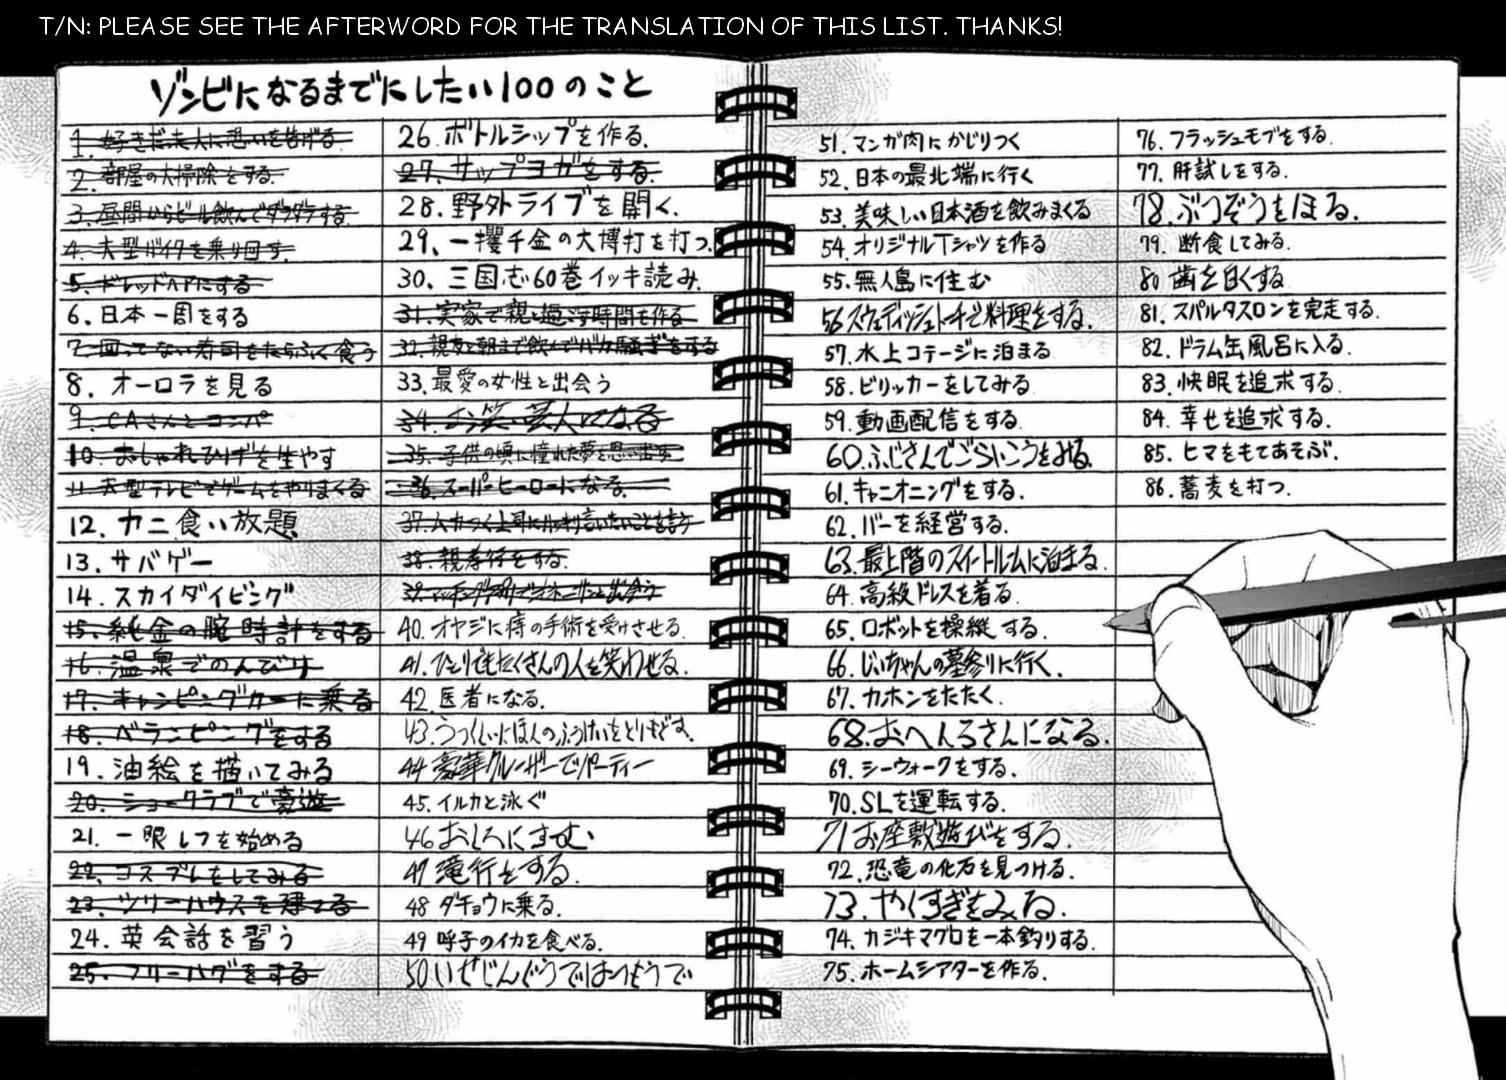 T/N: PLEASE SEE THE AFTERWORD FOR THE TRANSLATION OF THIS LIST. THANKS!
ゾンビになるまでにしたい100のこと
1. 好きだった人に思いを告げる
2. 部屋の大掃除をする.
3. 昼間からビール飲んでダラダラする
4. 大型バイクを乗り回す.
5. ドレッドヘアにする
6. 日本一周をする
7. 回ってない寿司をたらふく食う
8. オーロラを見る
9. CAさんとコンパ
10. おしゃれひげを生やす
11. 大型テレビでゲームをやりまくる
12. カニ食い放題
13. サバゲー
14. スカイダイビング
15. 純金の腕時計をする
16. 温泉でのんびり
17. キャンピングカーに乗る
18. ベランピングをする
19. 油絵を描いてみる
20. ショークラブで豪遊
21. 一眼レフを始める
22. コスプレをしてみる
23. ツリーハウスを建てる
24. 英会話を習う
25. フリーハグをする
26. ボトルシップを作る.
27. サップヨガをする.
28. 野外ライブを開く.
29. 一攫千金の大博打を打つ.
30. 三国志60巻イッキ読み.
31. 実家で親と過ごす時間を作る
32. 親友と朝まで飲んでバカ騒ぎをする
33. 最愛の女性と出会う
34. お笑い芸人になる
35. 子供の頃に憧れた夢を思い出す
36. スーパーヒーローになる.
37. ムカつく上司にハッキリ言いたいことを言う
38. 親孝行をする.
39. マッチングアプリで
40. オヤジに痔の手術を受けさせる.
41. ひとりでもたくさんの人を笑わせる.
42. 医者になる.
43. うつくしいにほんのふうけいをとりもどす.
44 豪華クルーザーでパーティー
45. イルカと泳ぐ
46 おしろにすむ
47 滝行をする.
48 ダチョウに乗る.
49 呼子のイカを食べる.
50 いせじんぐうではつもうで
51. マンガ肉にかじりつく
52. 日本の最北端に行く
53. 美味しい日本酒を飲みまくる
54. オリジナルTシャツを作る
55. 無人島に住む
56 スウェディッシュトーチで料理をする.
57. 水上コテージに泊まる
58. ビリッカーをしてみる
59. 動画配信をする.
60. ふじさんでごらいこうをみる.
61. キャニオニングをする.
62. バーを経営する.
63. 最上階のスイートルームに泊まる.
64. 高級ドレスを着る.
65. ロボットを操縦する.
66. じいちゃんの墓参りに行く.
67. カホンをたたく.
68. おへんろさんになる.
69. シーウォークをする.
70. SLを運転する.
71 お座敷遊びをする.
72. 恐竜の化石を見つける.
73. やくすぎをみる.
74. カジキマグロを一本釣りする.
75. ホームシアターを作る.
76. フラッシュモブをする.
77. 肝試しをする.
78. ぶつぞうをほる.
79. 断食してみる.
80 歯を白くする
81. スパルタスロンを完走する.
82. ドラム缶風呂に入る.
83. 快眠を追求する.
84. 幸せを追求する.
85. ヒマをもてあそぶ.
86. 蕎麦を打つ.